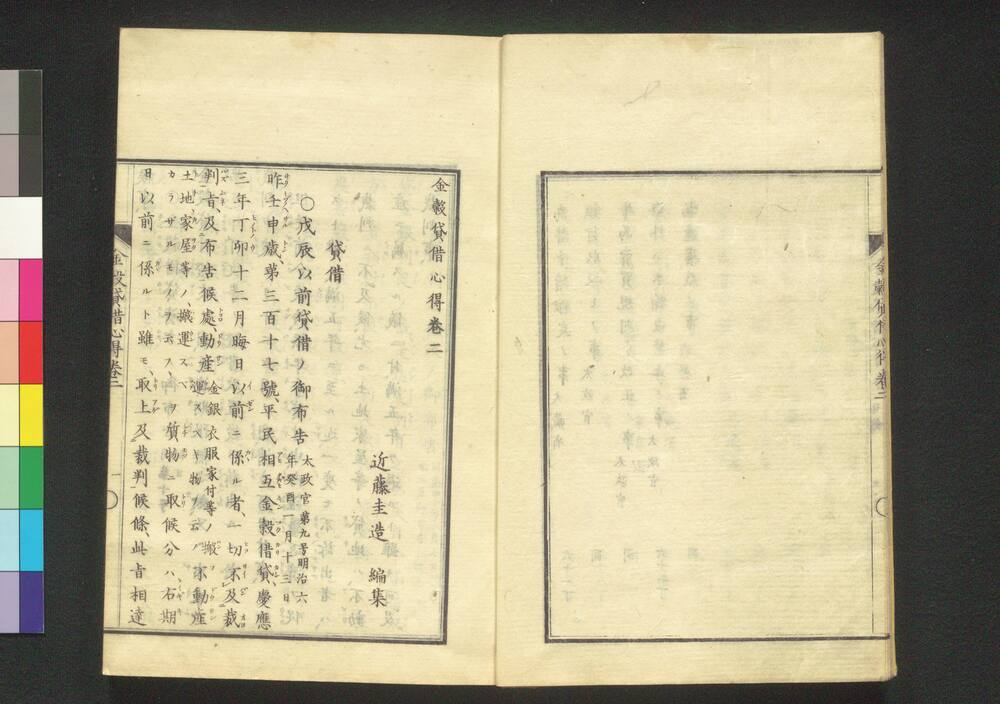 金穀貸借心得巻二
近藤圭造 編集
貸借
○戊辰以前貸借ノ御布告 太政官第九号明治六年癸酉一月十三日
昨壬申歳第三百十七號、平民相互金穀借貸、慶應
三年丁卯十二月晦日以前ニ係ル者、一切不及裁
判旨、及布告候處、動産 金銀衣服家付等ノ搬運スベキ物ヲ云フ 不動産
土地家屋等ノ、搬運スベカラザルモノヲ云フ、ヲ質物ニ取候分ハ、右期
日以前ニ係ルト雖モ、取上及裁判候條、此旨相達
金穀貸借心得巻二
一
金穀貸借心得巻二